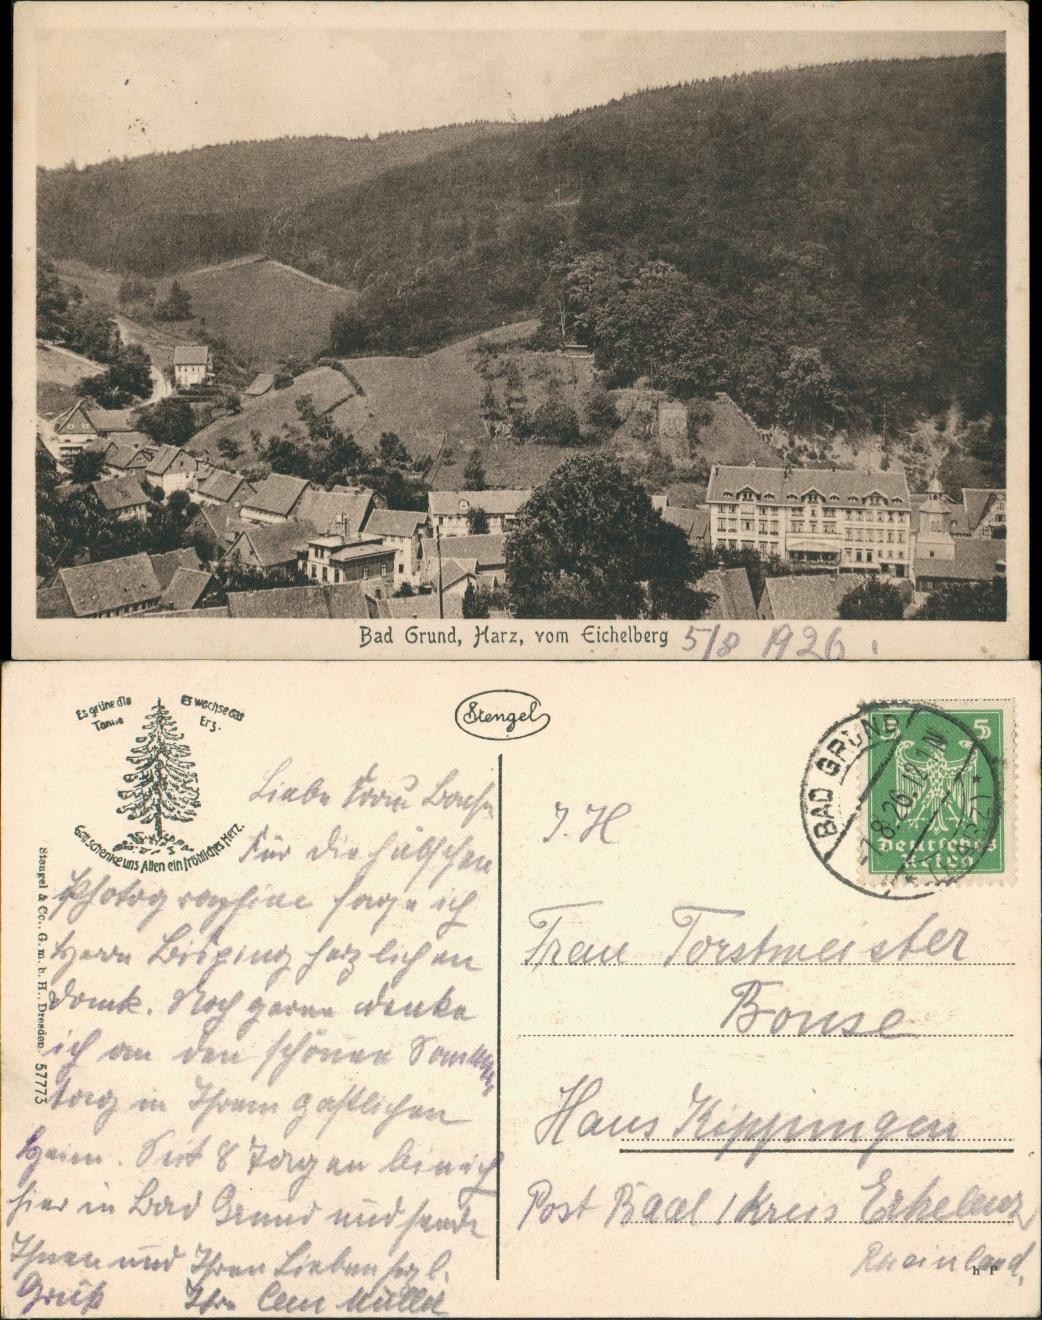 Bad Grund, Harz, vom Eichelberg 5/8 1926.
Es grüne die Tanne
Es wachse das Erz.
Gott schenke uns Allen ein fröhliches Herz.
Stengel
Stengel & Co., G. m. b. H., Dresden. 57773
BAD GRUND
8.26.12-1 N
5
Deutsches
Reich
Liebe Frau
Für die hübschen
Photographien sage ich
Herrn herzlichen
Dank. Noch gerne denke
ich an den schönen Sonn
tag in Ihrem gastlichen
Heim. Seit 8 Tagen bin ich
hier in Bad Grund und sende
Ihnen und Ihren Lieben hzl.
Gruß Ihr Müller
I. H
Frau Forstmeister
Bonse
Haus Kippingen
Post Baal / Kreis Erkelenz
Rheinland,